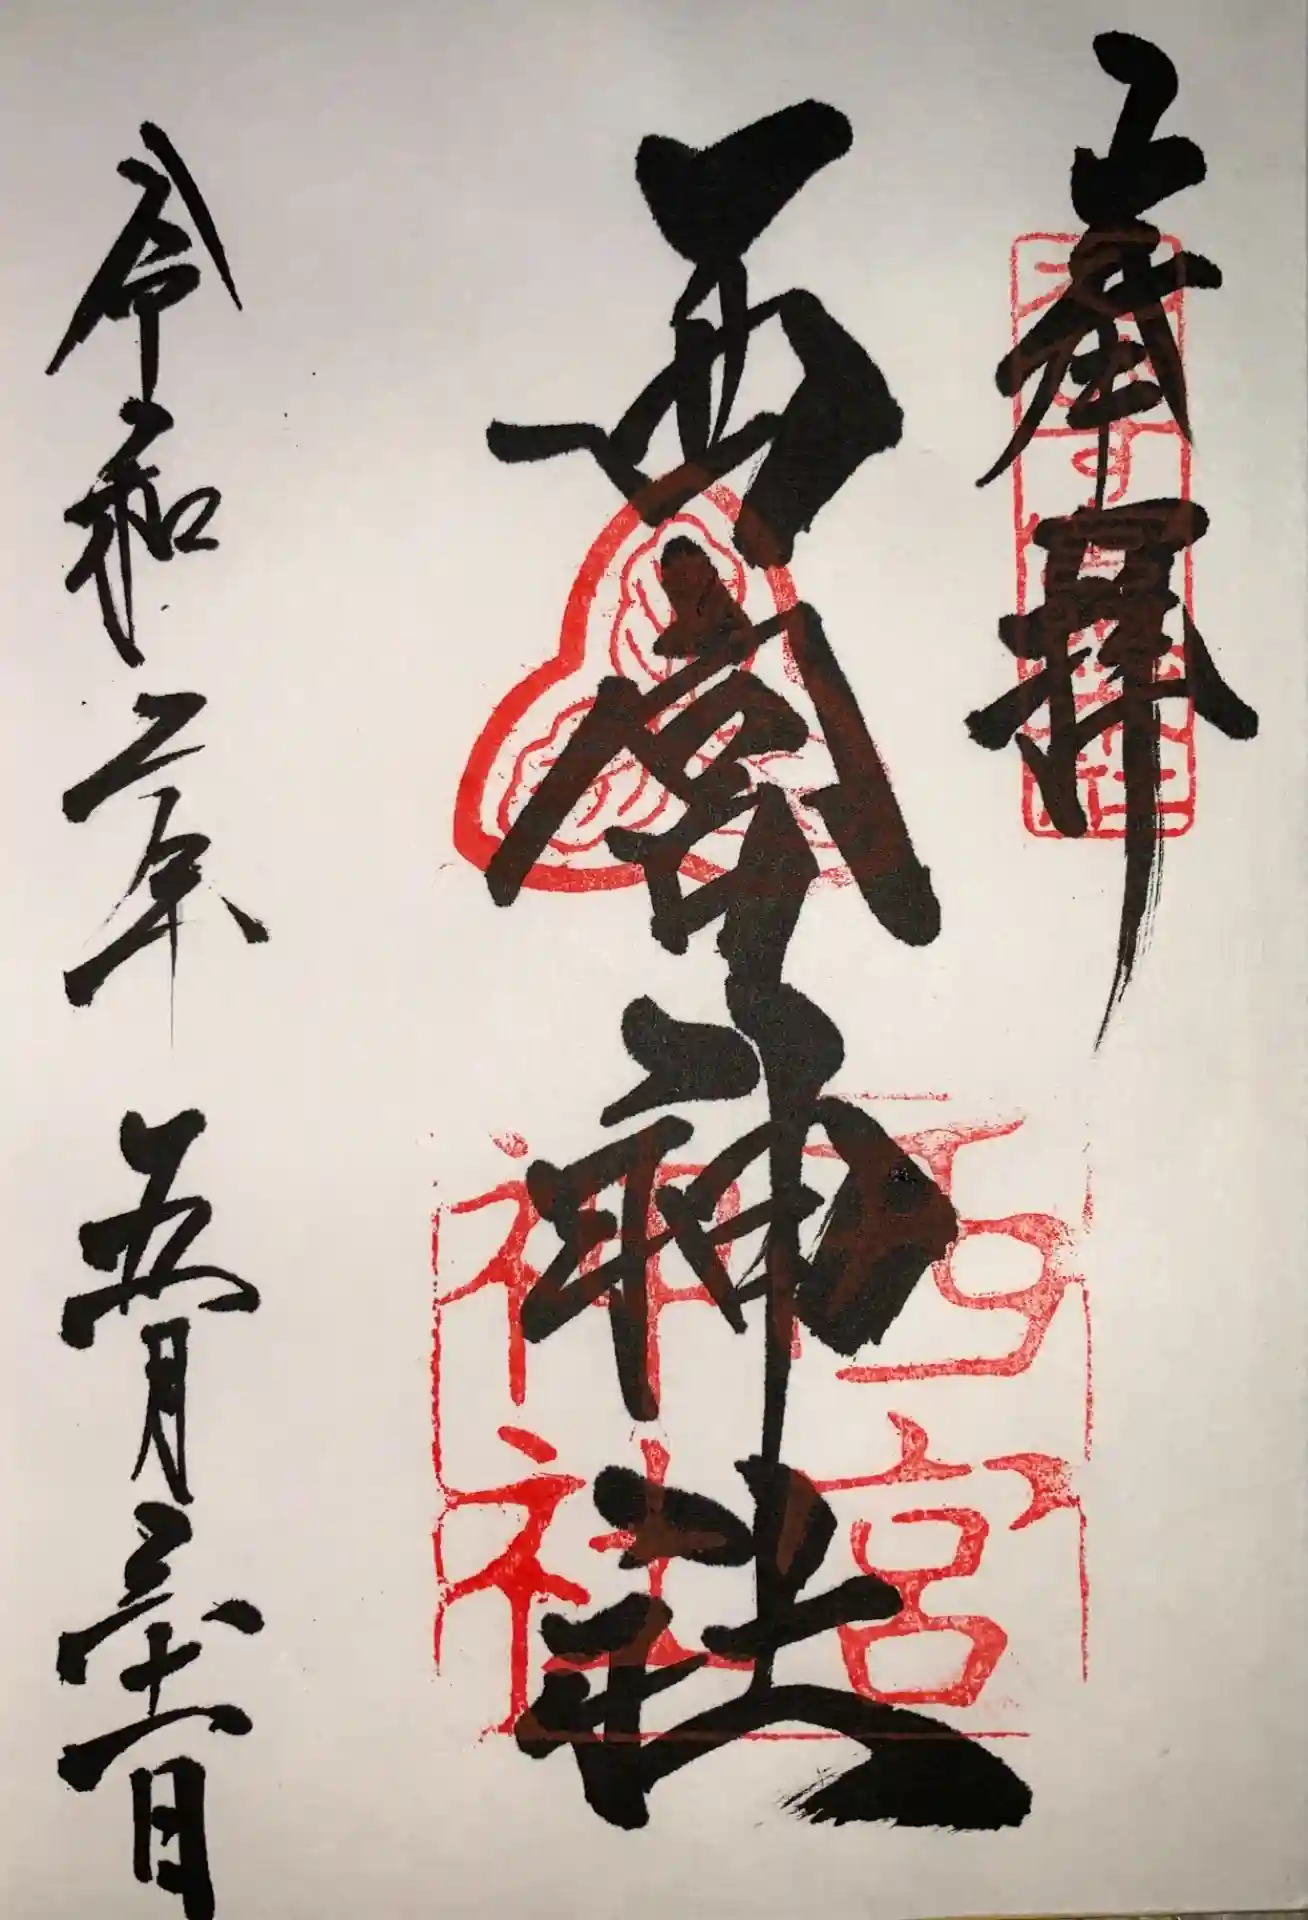 奉拝
西宮神社
西宮
神社
令和二年五月三十一日